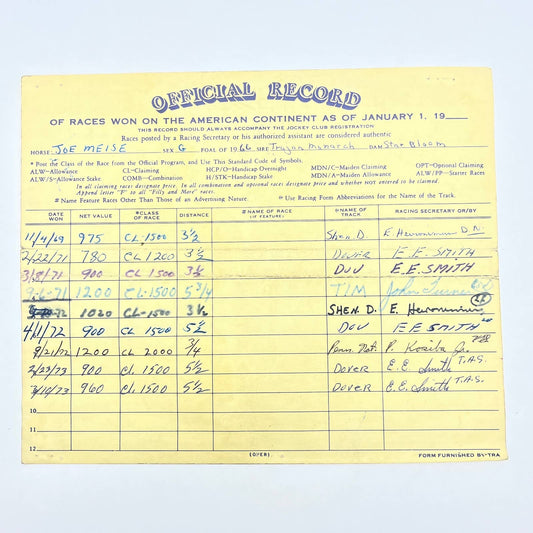 OFFICIAL RECORD
OF RACES WON ON THE AMERICAN CONTINENT AS OF JANUARY 1, 19
THIS RECORD SHOULD ALWAYS ACCOMPANY THE JOCKEY CLUB REGISTRATION
Races posted by a Racing Secretary or his authorized assistant are considered authentic
HORSE JOE MEISE SEX G FOAL OF 1966 SIRE Trojan Monarch DAM Star Bloom
* Post the Class of the Race from the Official Program, and Use This Standard Code of Symbols.
ALW—Allowance CL—Claiming HCP/O—Handicap Overnight MDN/C—Maiden Claiming OPT—Optional Claiming
ALW/S—Allowance Stake COMB—Combination H/STK—Handicap Stake MDN/A—Maiden Allowance ALW/PP—Starter Races
In all claiming races designate price. In all combination and optional races designate price and whether NOT entered to be claimed.
Append letter "F" to all "Filly and Mare" races.
# Name Feature Races Other Than Those of an Advertising Nature. * Use Racing Form Abbreviations for the Name of the Track.
DATE WON NET VALUE *CLASS OF RACE DISTANCE # NAME OF RACE (IF FEATURE) *NAME OF TRACK RACING SECRETARY OR/BY
11/4/69 975 CL-1500 3½ Shen D E.
2/22/71 780 CL 1200 3½ Dover E E. SMITH
3/8/71 900 CL 1500 3½ DOV E.E. SMITH
1200 CL-1500 5 3/4 TIM John Turner
72 1020 CL-1500 3½ SHEN D. E.
4/1/72 900 CL 1500 5½ DOV E E SMITH
9/21/72 1200 CL 2000 3/4 Penn Nat. P. Kosiba Jr.
2/23/73 900 CL. 1500 5½ DOVER E.E. Smith T.A.G.
3/10/73 960 CL. 1500 5½ DOVER E.E. Smith T.A.G.
10
11
12
(OVER) FORM FURNISHED BY TRA